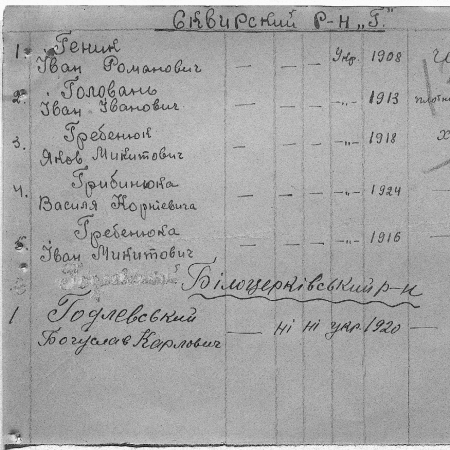 Сквирский р-н „Г."
1. Геник
Іван Романович — — — Укр. 1908
2. Головань
Іван Іванович — — — -„- 1913
3. Гребенюк
Яков Микитович — — — -„- 1918
4. Грибинюка
Василя Корнієвича — — — -„- 1924 —
5. Гребенюка
Іван Микитович — — — -„- 1916 —
Білоцерківський р-н
1 Годлевський
Богуслав Карлович — ні ні укр. 1920 —